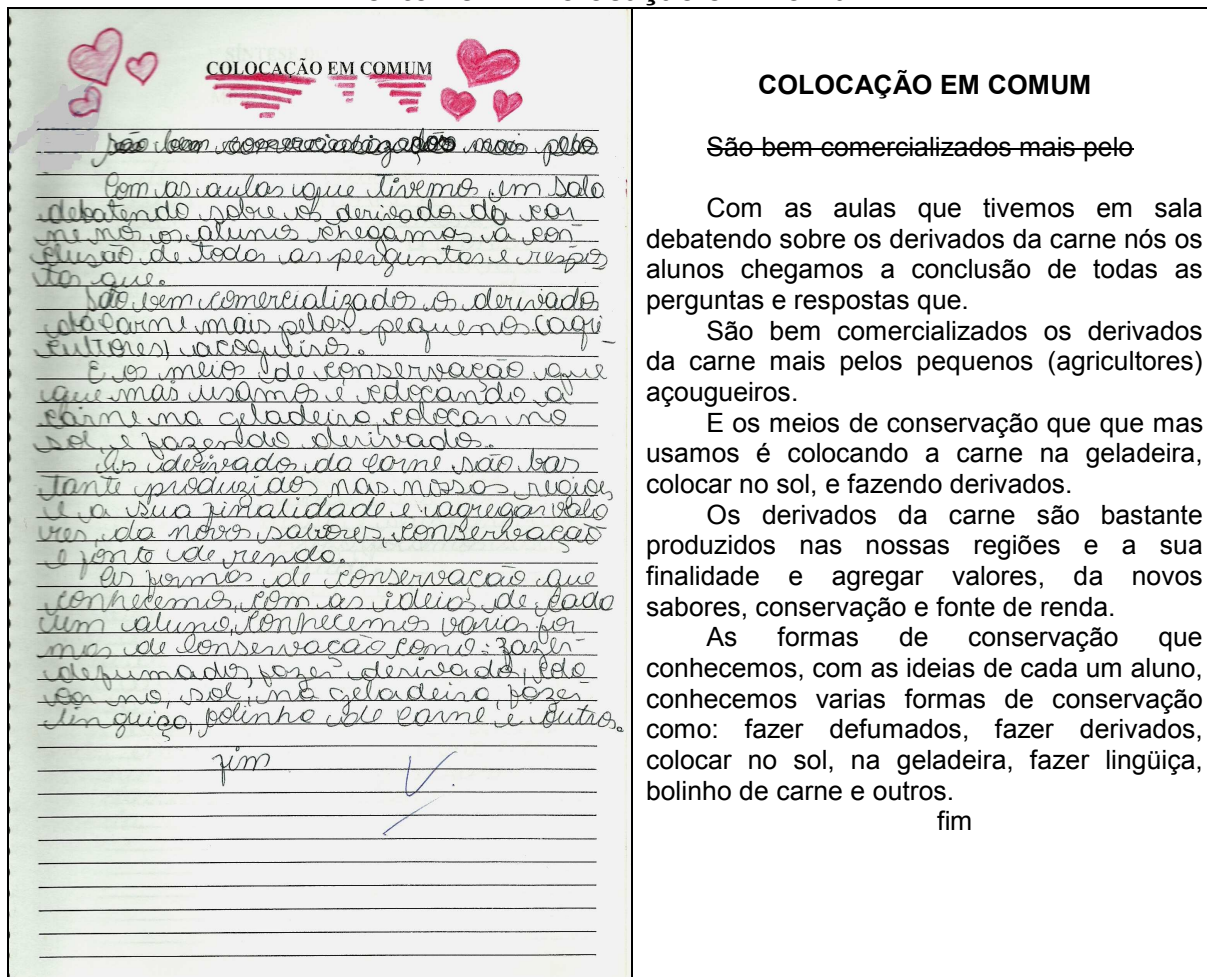 COLOCAÇÃO EM COMUM
são bem comercializados mais pelos
Com as aulas que tivemos em sala
debatendo sobre os derivados da car
ne nós os alunos chegamos a con-
clusão de todas as perguntas e respos
tas que.
São bem comercializados os derivados
da carne mais pelos pequenos (agri-
cultores) açogueiros.
E os meios de conservação que
que mas usamos é colocando a
carne na geladeira, colocar no
sol, e fazendo derivados.
Os derivados da carne são bas
tante produzidos nas nossas regiões
e a sua finalidade e agregar valo
res, da novos sabores, conservação
e fonte de renda.
As formas de conservação que
conhecemos, com as ideias de cada
um aluno, conhecemos varias for
mas de conservação como: fazer
defumados, fazer derivados, colo
car no sol, na geladeira, fazer
linguiça, bolinho de carne e outros.
fim
COLOCAÇÃO EM COMUM
São bem comercializados mais pelo
Com as aulas que tivemos em sala
debatendo sobre os derivados da carne nós os
alunos chegamos a conclusão de todas as
perguntas e respostas que.
São bem comercializados os derivados
da carne mais pelos pequenos (agricultores)
açougueiros.
E os meios de conservação que que mas
usamos é colocando a carne na geladeira,
colocar no sol, e fazendo derivados.
Os derivados da carne são bastante
produzidos nas nossas regiões e a sua
finalidade e agregar valores, da novos
sabores, conservação e fonte de renda.
As formas de conservação que
conhecemos, com as ideias de cada um aluno,
conhecemos varias formas de conservação
como: fazer defumados, fazer derivados,
colocar no sol, na geladeira, fazer lingüiça,
bolinho de carne e outros.
fim